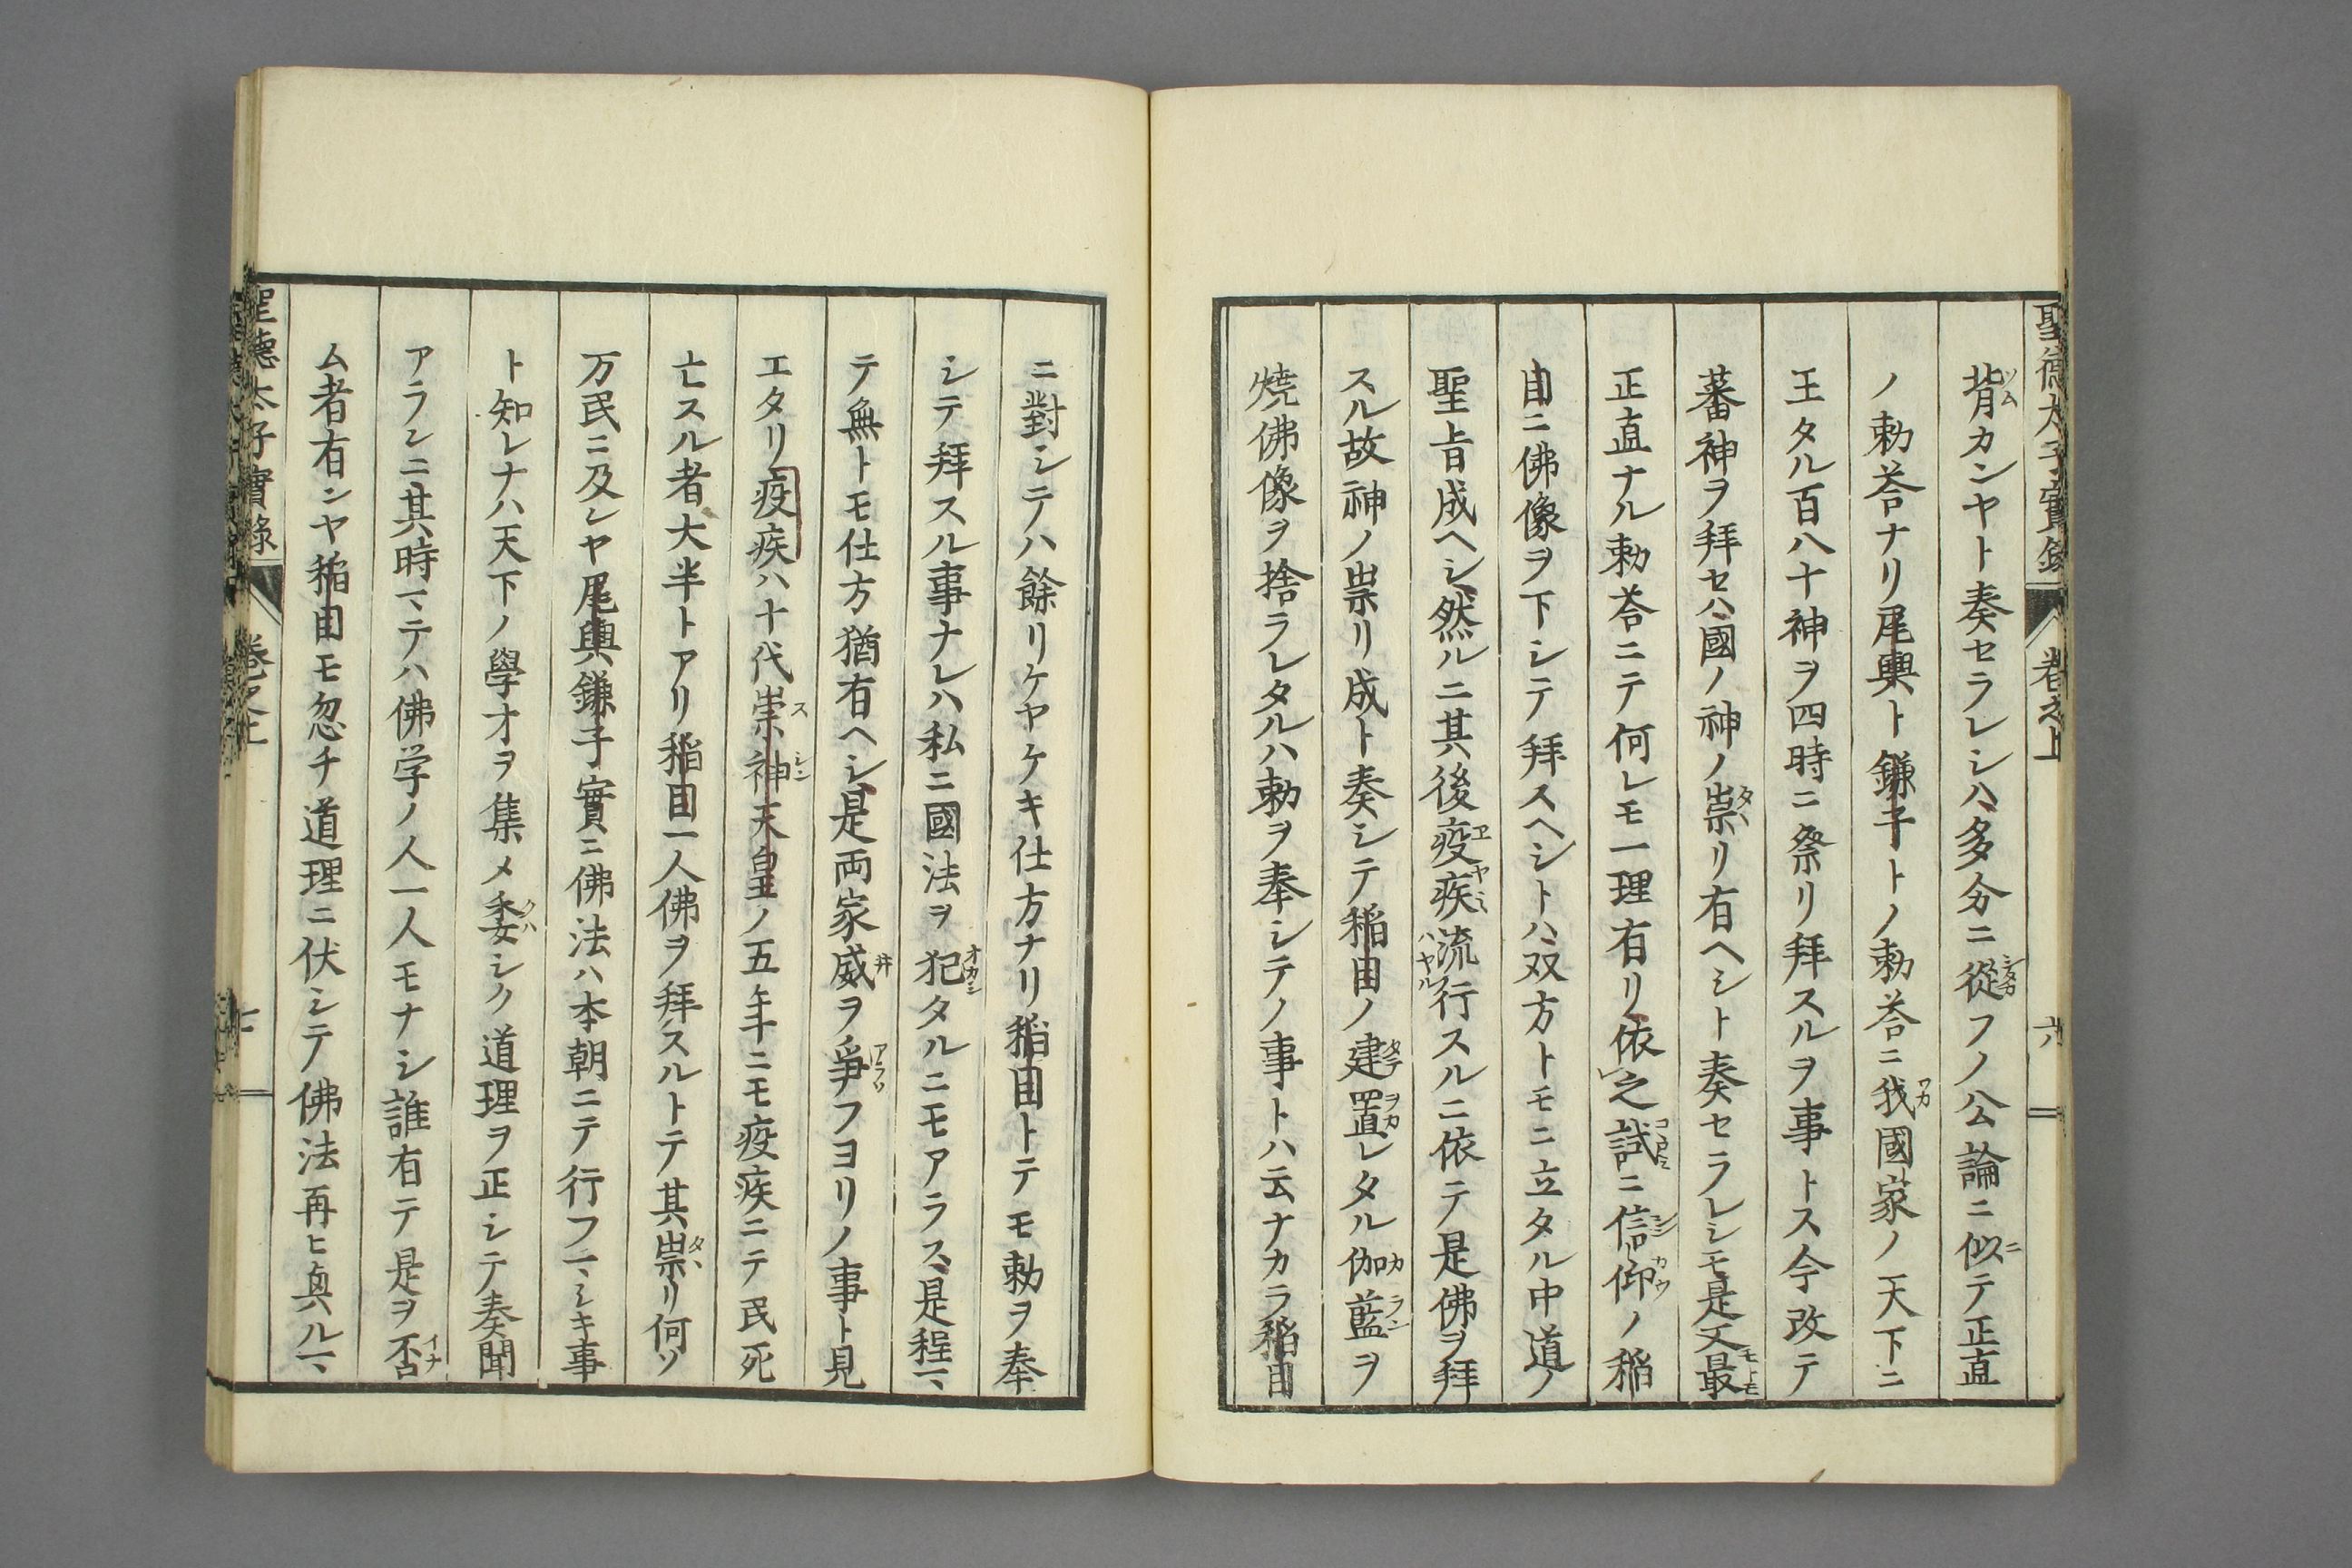 聖德太子實録 卷之上 六
背カンヤト奏セラレシハ多分ニ從フノ公論ニ似テ正直
ノ勅荅ナリ尾輿ト鎌子トノ勅荅ニ我國家ノ天下ニ
王タル百八十神ヲ四時ニ祭リ拜スルヲ事トス今改テ
蕃神ヲ拜セハ國ノ神ノ祟リ有ヘシト奏セラレシモ是又最
正直ナル勅荅ニテ何レモ一理有リ依之試ニ信仰ノ稲
目ニ佛像ヲ下シテ拜スヘシトハ双方トモニ立タル中道ノ
聖旨成ヘシ然ルニ其後疫疾流行スルニ依テ是佛ヲ拜
スル故神ノ祟リ成ト奏シテ稲目ノ建置レタル伽藍ヲ
焼佛像ヲ捨ラレタルハ勅ヲ奉シテノ事トハ云ナカラ稲目
ニ對シテハ餘リケヤケキ仕方ナリ稲目トテモ勅ヲ奉
シテ拜スル事ナレハ私ニ國法ヲ犯タルニモアラス是程マ
テ無トモ仕方猶有ヘシ是両家威ヲ爭フヨリノ事ト見
エタリ疫疾ハ十代崇神天皇ノ五年ニモ疫疾ニテ民死
亡スル者大半トアリ稲目一人佛ヲ拜スルトテ其祟リ何ソ
万民ニ及シヤ尾輿鎌子實ニ佛法ハ本朝ニテ行フマシキ事
ト知レナハ天下ノ學才ヲ集メ委シク道理ヲ正シテ奏聞
アランニ其時マテハ佛学ノ人一人モナシ誰有テ是ヲ否
ム者有ンヤ稲目モ忽チ道理ニ伏シテ佛法再ヒ真ルマ
聖德太子實録 卷之上 七